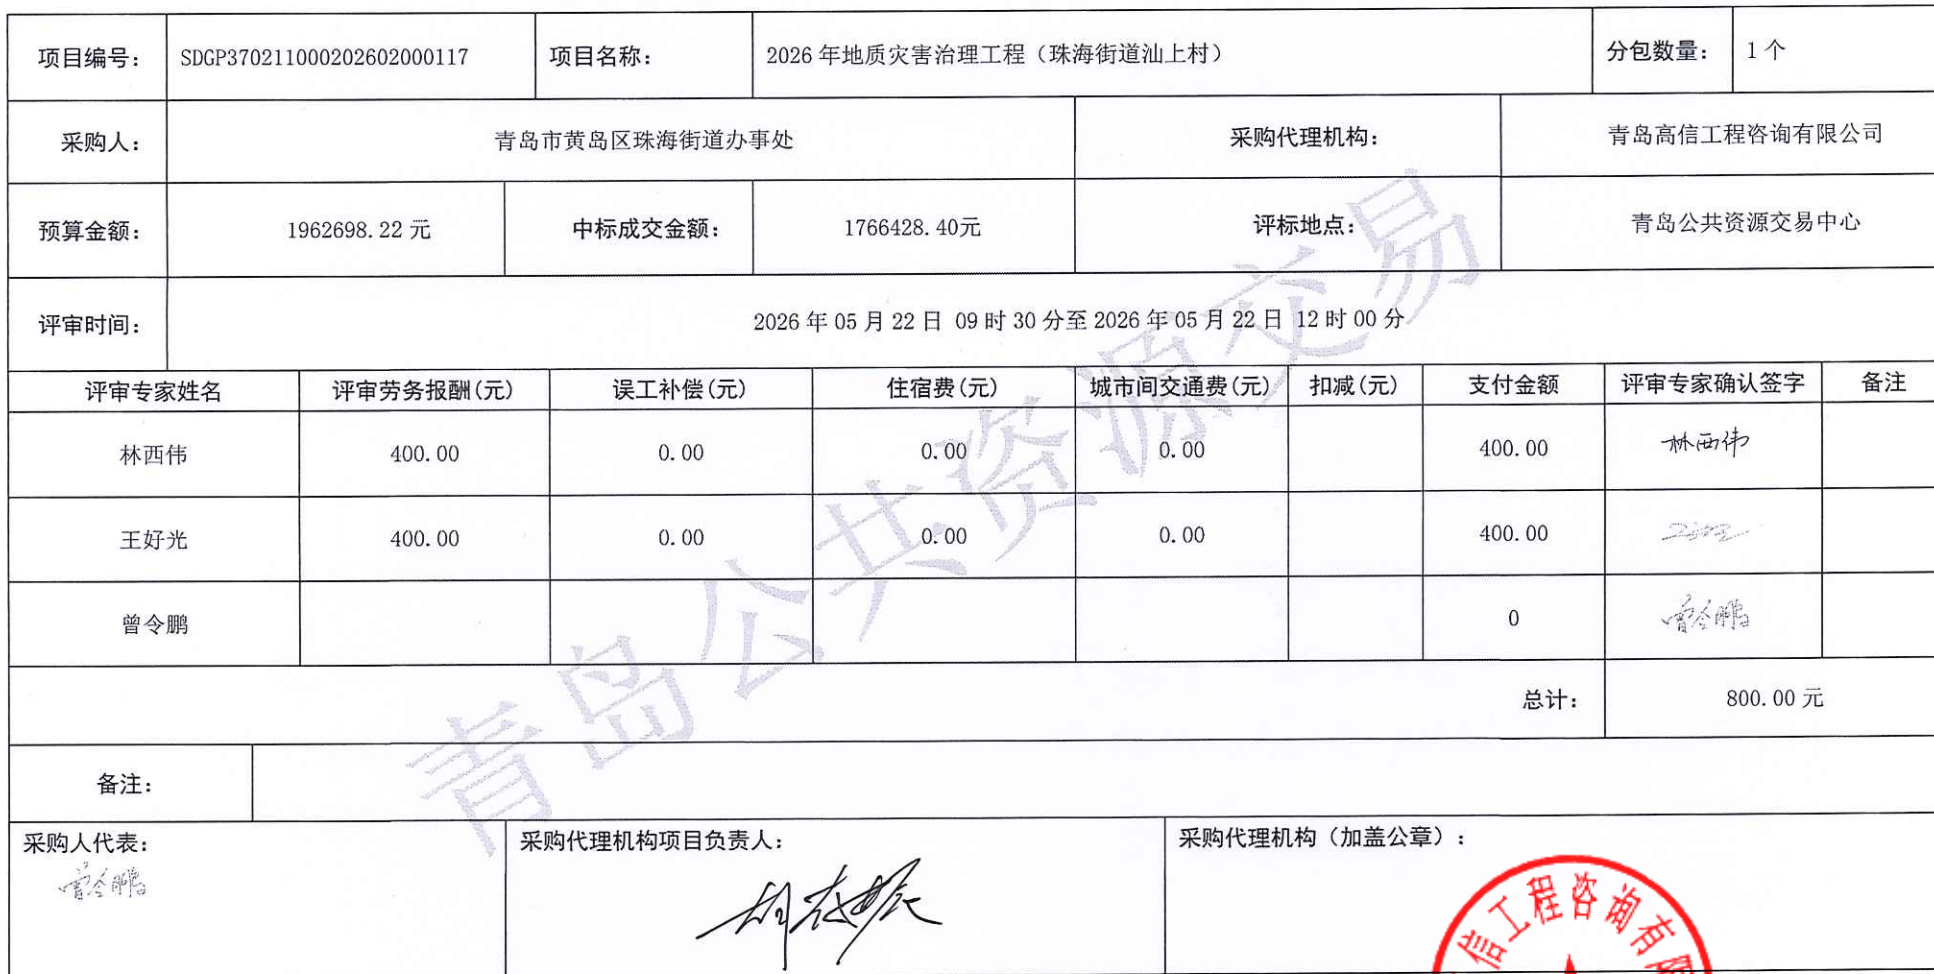 项目编号： SDGP370211000202602000117 项目名称： 2026 年地质灾害治理工程（珠海街道汕上村） 分包数量： 1 个
采购人： 青岛市黄岛区珠海街道办事处 采购代理机构： 青岛高信工程咨询有限公司
预算金额： 1962698.22 元 中标成交金额： 1766428.40元 评标地点： 青岛公共资源交易中心
评审时间： 2026 年 05 月 22 日 09 时 30 分至 2026 年 05 月 22 日 12 时 00 分
评审专家姓名 评审劳务报酬(元) 误工补偿(元) 住宿费(元) 城市间交通费(元) 扣减(元) 支付金额 评审专家确认签字 备注
林西伟 400.00 0.00 0.00 0.00 400.00 林西伟
王好光 400.00 0.00 0.00 0.00 400.00
曾令鹏 0 曾令鹏
总计： 800.00 元
备注：
采购人代表： 采购代理机构项目负责人： 采购代理机构（加盖公章）：
曾令鹏
信工程咨询有限
青岛公共资源交易